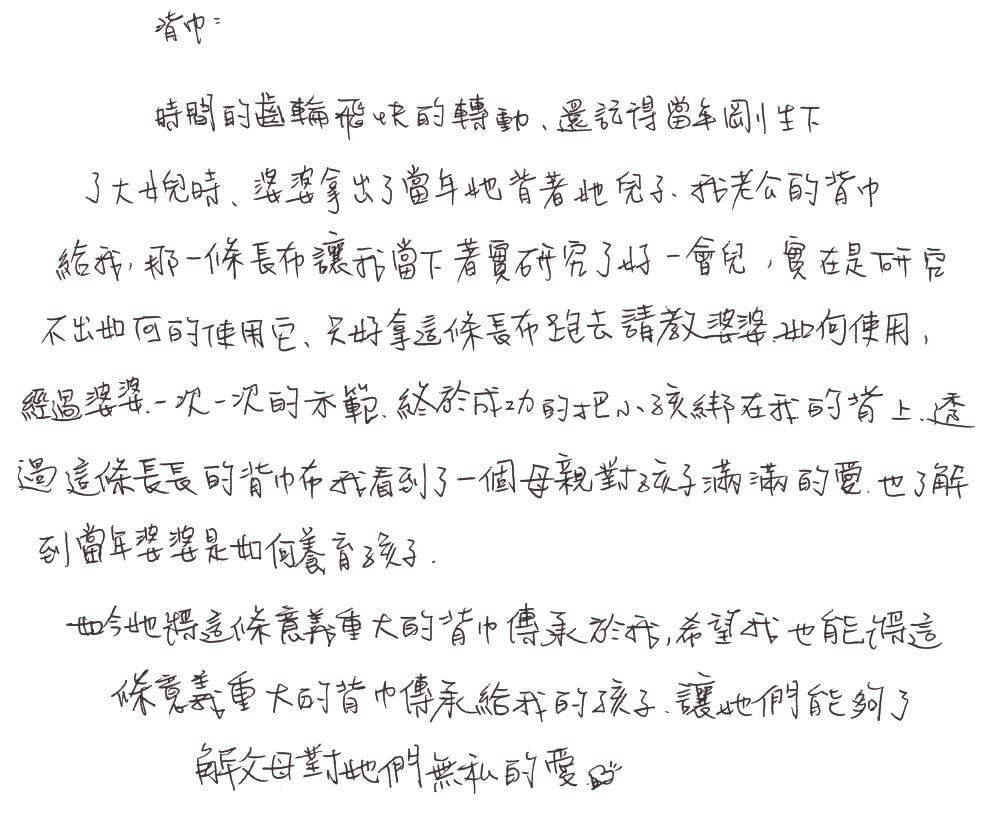 背巾:
時間的齒輪飛快的轉動、還記得當年剛生下
了大女兒時、婆婆拿出了當年她背著她兒子、我老公的背巾
給我,那一條長布讓我當下著實研究了好一會兒,實在是研究
不出如何的使用它、只好拿這條長布跑去請教婆婆如何使用,
經過婆婆一次一次的示範、終於成功的把小孩綁在我的背上、透
過這條長長的背巾布我看到了一個母親對孩子滿滿的愛、也了解
到當年婆婆是如何養育孩子.
如今她將這條意義重大的背巾傳承於我,希望我也能將這
條意義重大的背巾傳承給我的孩子、讓她們能夠了
解父母對她們無私的愛